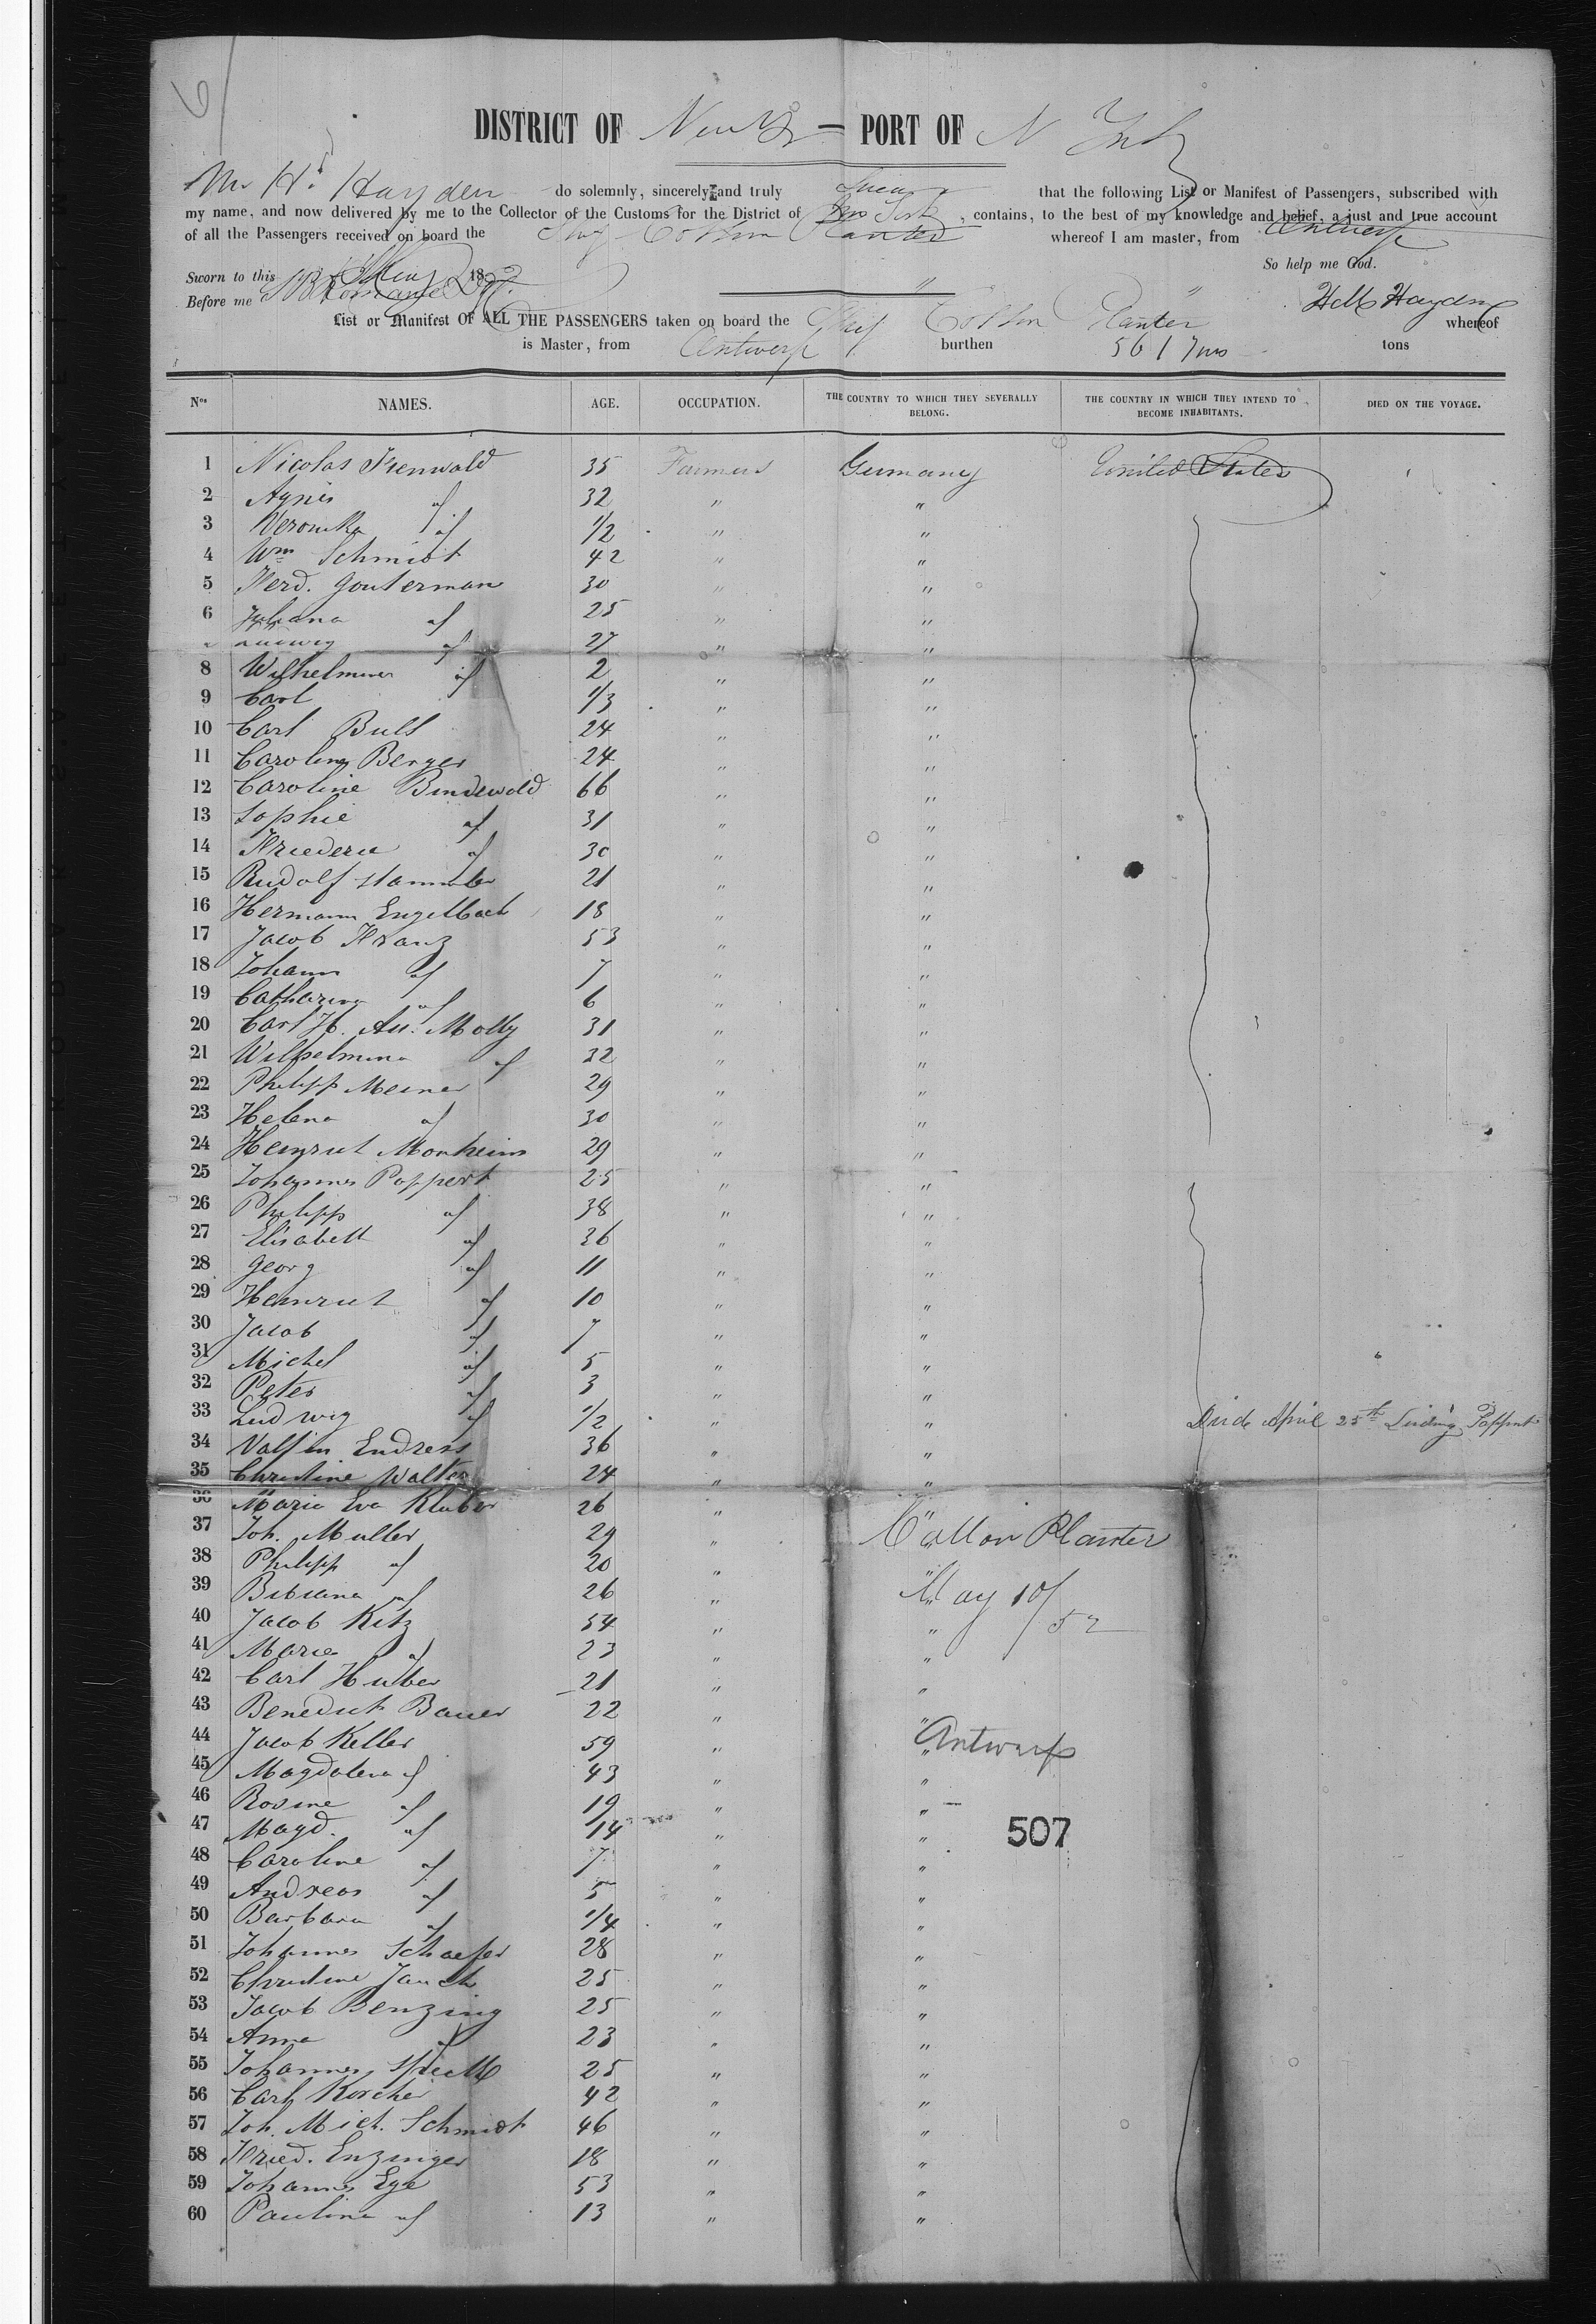 6
DISTRICT OF New York — PORT OF N York
Wm H. Hayden do solemnly, sincerely and truly Swear that the following List or Manifest of Passengers, subscribed with
my name, and now delivered by me to the Collector of the Customs for the District of New York, contains, to the best of my knowledge and belief, a just and true account
of all the Passengers received on board the Ship Cotton Planter whereof I am master, from Antwerp
So help me God.
Sworn to this May 1852
Before me
Wm Hayden
List or Manifest OF ALL THE PASSENGERS taken on board the Ship Cotton Planter whereof
is Master, from Antwerp burthen 561 tons
Nos NAMES. AGE. OCCUPATION. THE COUNTRY TO WHICH THEY SEVERALLY BELONG. THE COUNTRY IN WHICH THEY INTEND TO BECOME INHABITANTS. DIED ON THE VOYAGE.
1 Nicolas 35 Farmers Germany United States
2 Agnes " 32 " "
3 Veronika " 1/2 " "
4 Wm Schmidt 42 " "
5 Ferd. Gouterman 30 " "
6 Juliana " 25 " "
Ludwig " 27 " "
8 Wilhelmine " 2 " "
9 Carl 1/3 " "
10 Carl Bull 24 " "
11 Caroline Berger 24 " "
12 Caroline Bindewald 66 " "
13 Sophie " 31 " "
14 Friedere " 30 " "
15 Rudolf Stammler 21 " "
16 Hermann Engelbach 18 " "
17 Jacob Franz 53 " "
18 Johann " 7 " "
19 Catharina " 6 " "
20 Carl H. Au. Molly 31 " "
21 Wilhelmina " 32 " "
22 Philipp Meiner 29 " "
23 Helena " 30 " "
24 Heinrich Monheim 29 " "
25 Johannes Poppert 25 " "
26 Philipp " 38 " "
27 Elisabeth " 36 " "
28 Georg " 11 " "
29 Heinrich " 10 " "
30 Jacob " 7 " "
31 Michel " 5 " "
32 Peter " 3 " "
33 Ludwig " 1/2 " " Died April 25th Ludwig Poppert
34 Valtin Endress 36 " "
35 Christine Walter 24 " "
36 Maria Eva Kluber 26 " "
37 Joh. Muller 29 " " Cotton Planter
38 Philipp " 20 " "
39 Bibiana " 26 " " May 10/52
40 Jacob Kitz 54 " "
41 Maria " 23 " "
42 Carl Huber 21 " "
43 Benedict Bauer 22 " "
44 Jacob Keller 59 " " Antwerp
45 Magdalena " 43 " "
46 Rosine " 19 " "
47 Magd. " 14 " " 507
48 Caroline " 7 " "
49 Andreas " 5 " "
50 Barbara " 1/4 " "
51 Johannes Schaefer 28 " "
52 Christine Jauch 25 " "
53 Jacob Benzing 25 " "
54 Anna " 23 " "
55 Johannes 25 " "
56 Carl Kircher 42 " "
57 Joh. Mich. Schmidt 46 " "
58 Fried. Enzinger 18 " "
59 Johannes Ege 53 " "
60 Paulina " 13 " "